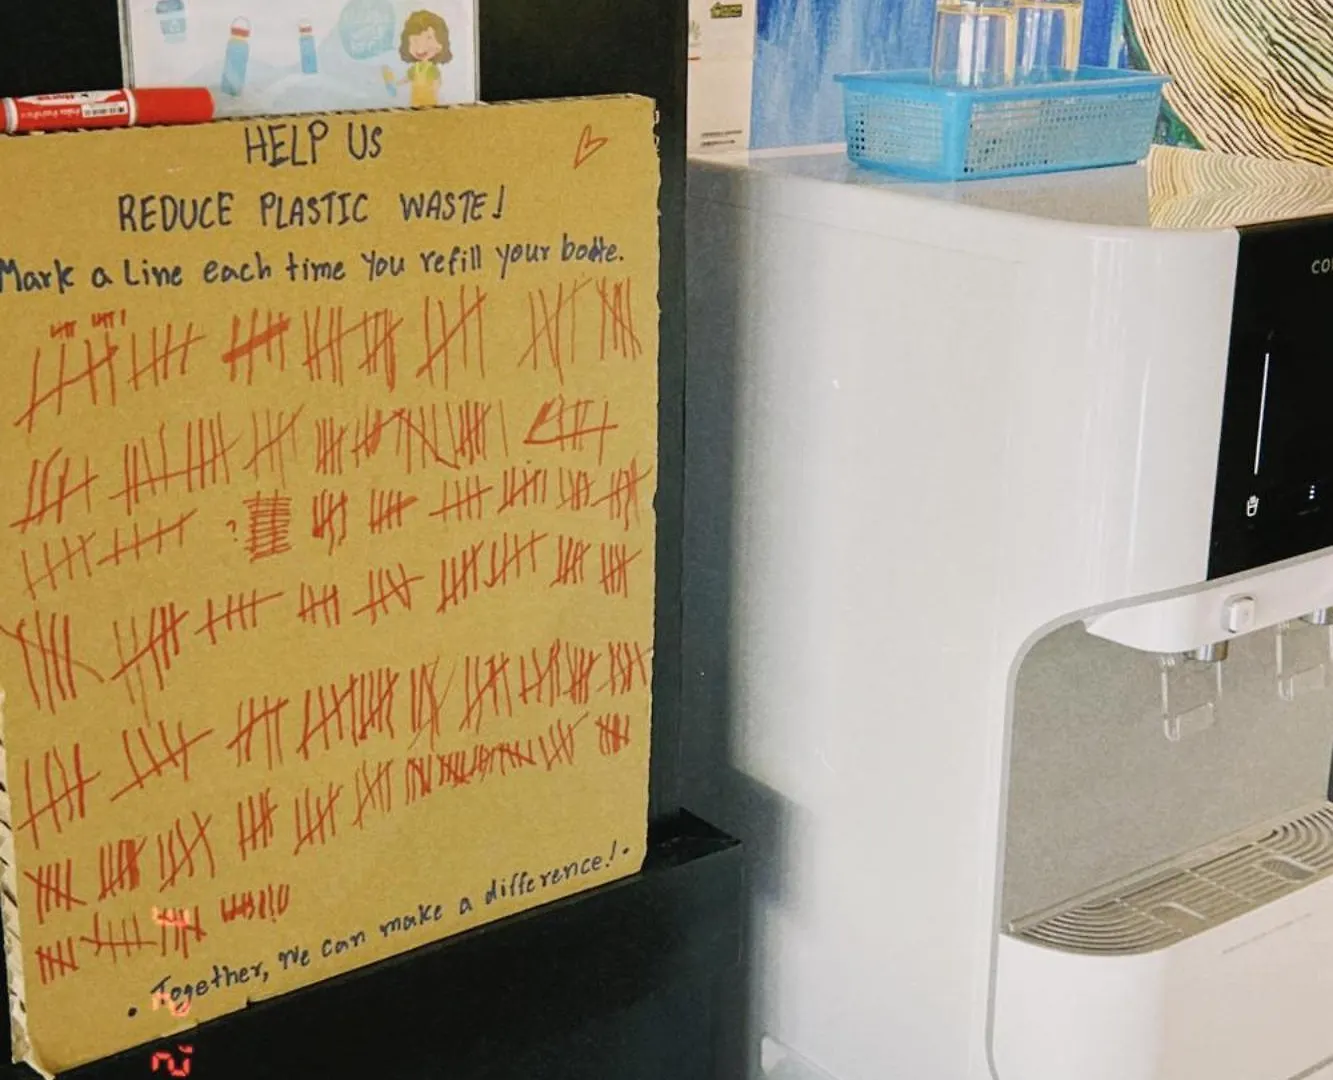 HELP US
REDUCE PLASTIC WASTE!
Mark a Line each time You refill your bottle.
Together, We can make a difference!